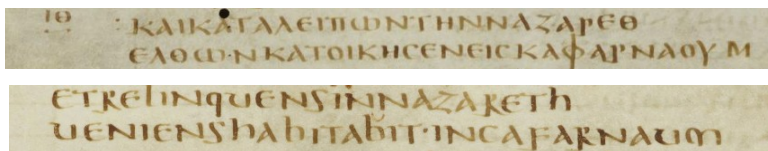 ΙΘ : ΚΑΙΚΑΤΑΛΕΙΠΩΝΤΗΝΝΑΖΑΡΕΘ
ΕΛΘΩ·ΝΚΑΤΟΙΚΗϹΕΝΕΙϹΚΑΦΑΡΝΑΟΥΜ
ETRELINQUENSINNAZARETh
UENIENShAbITAbIT·INCAFARNAUM